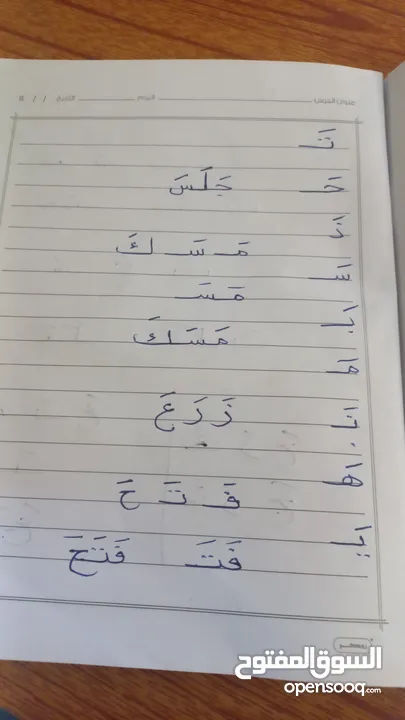 عنوان الدرس اليوم التاريخ / / ١٤
تَ
حَـ جَلَسَ
دَ
مَـ سَـ كَ
سَـ
مَسَـ
بَا
مَسَكَ
مَا
زَرَعَ
نَا
هَا
فَـ تَـ حَ
يَا
فَتَـ فَتَحَ
السوق المفتوح
opensooq.com